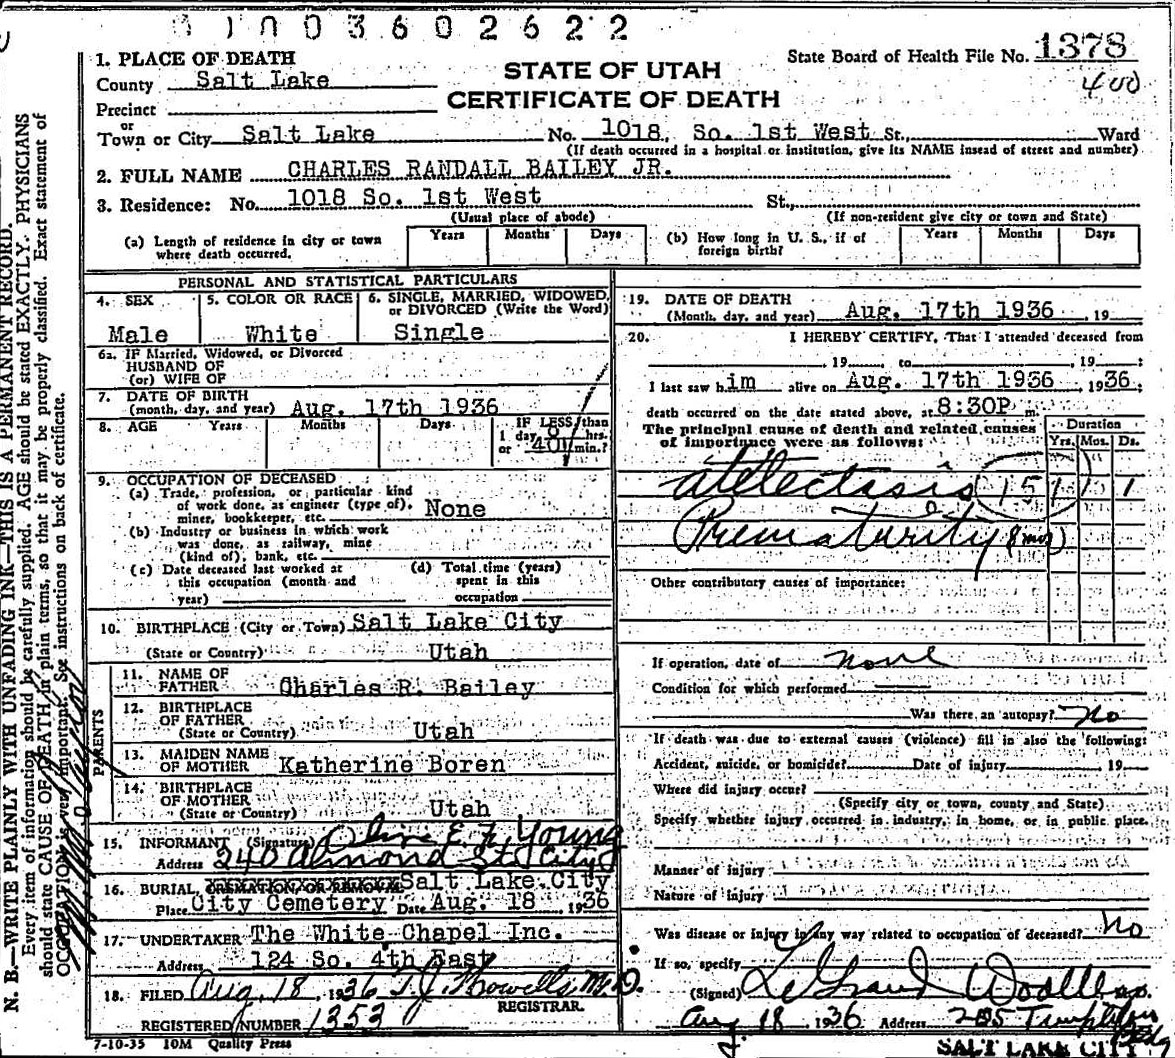 0 1 0 0 3 6 0 2 6 2 2
State Board of Health File No. 1378
400
STATE OF UTAH
CERTIFICATE OF DEATH
1. PLACE OF DEATH
County Salt Lake
Precinct
or
Town or City Salt Lake No. 1018 So. 1st West St., Ward
(If death occurred in a hospital or institution, give its NAME insead of street and number)
2. FULL NAME CHARLES RANDALL BAILEY JR.
3. Residence: No. 1018 So. 1st West St.,
(Usual place of abode) (If non-resident give city or town and State)
(a) Length of residence in city or town where death occurred. Years Months Days (b) How long in U. S., if of foreign birth? Years Months Days
PERSONAL AND STATISTICAL PARTICULARS
4. SEX 5. COLOR OR RACE 6. SINGLE, MARRIED, WIDOWED, or DIVORCED (Write the Word)
Male White Single
6a. IF Married, Widowed, or Divorced
HUSBAND OF
(or) WIFE OF
7. DATE OF BIRTH
(month, day, and year) Aug. 17th 1936
8. AGE Years Months Days IF LESS than
1 day 0 hrs.
or 40 min.?
9. OCCUPATION OF DECEASED
(a) Trade, profession, or particular kind
of work done, as engineer (type of),
miner, bookkeeper, etc. None
(b) Industry or business in which work
was done, as railway, mine
(kind of), bank, etc.
(c) Date deceased last worked at
this occupation (month and
year)
(d) Total time (years)
spent in this
occupation
10. BIRTHPLACE (City or Town) Salt Lake City
(State or Country) Utah
PARENTS
11. NAME OF
FATHER Charles R. Bailey
12. BIRTHPLACE
OF FATHER
(State or Country) Utah
13. MAIDEN NAME
OF MOTHER Katherine Boren
14. BIRTHPLACE
OF MOTHER
(State or Country) Utah
15. INFORMANT (Signature) Olive E. F. Young
Address 240 Almond St. City
16. BURIAL, CREMATION, OR REMOVAL Salt Lake City
Place City Cemetery Date Aug. 18 1936
17. UNDERTAKER The White Chapel Inc.
Address 124 So. 4th East
18. FILED Aug. 18, 1936 T. J. Howells M.D.
REGISTRAR.
REGISTERED NUMBER 1353
7-10-35 10M Quality Press
19. DATE OF DEATH
(Month, day, and year) Aug. 17th 1936, 19
20. I HEREBY CERTIFY, That I attended deceased from
, 19 to , 19 :
I last saw him alive on Aug. 17th 1936, 1936;
death occurred on the date stated above, at 8:30P m.
The principal cause of death and related causes
of importance were as follows:
Duration
Yrs. Mos. Ds.
atelectasis 151 1
Prematurity (8 mos)
Other contributory causes of importance:
If operation, date of none
Condition for which performed
Was there an autopsy? No
If death was due to external causes (violence) fill in also the following:
Accident, suicide, or homicide? Date of injury 19
Where did injury occur?
(Specify city or town, county and State)
Specify whether injury occurred in industry, in home, or in public place.
Manner of injury
Nature of injury
Was disease or injury in any way related to occupation of deceased? No
If so, specify
(Signed) LeGrand Woolley M.D.
Aug 18 1936 Address 205 Templeton Bldg
SALT LAKE CITY
N. B.—WRITE PLAINLY WITH UNFADING INK—THIS IS A PERMANENT RECORD.
Every item of information should be carefully supplied. AGE should be stated EXACTLY. PHYSICIANS
should state CAUSE OF DEATH in plain terms, so that it may be properly classified. Exact statement of
OCCUPATION is very important. See instructions on back of certificate.